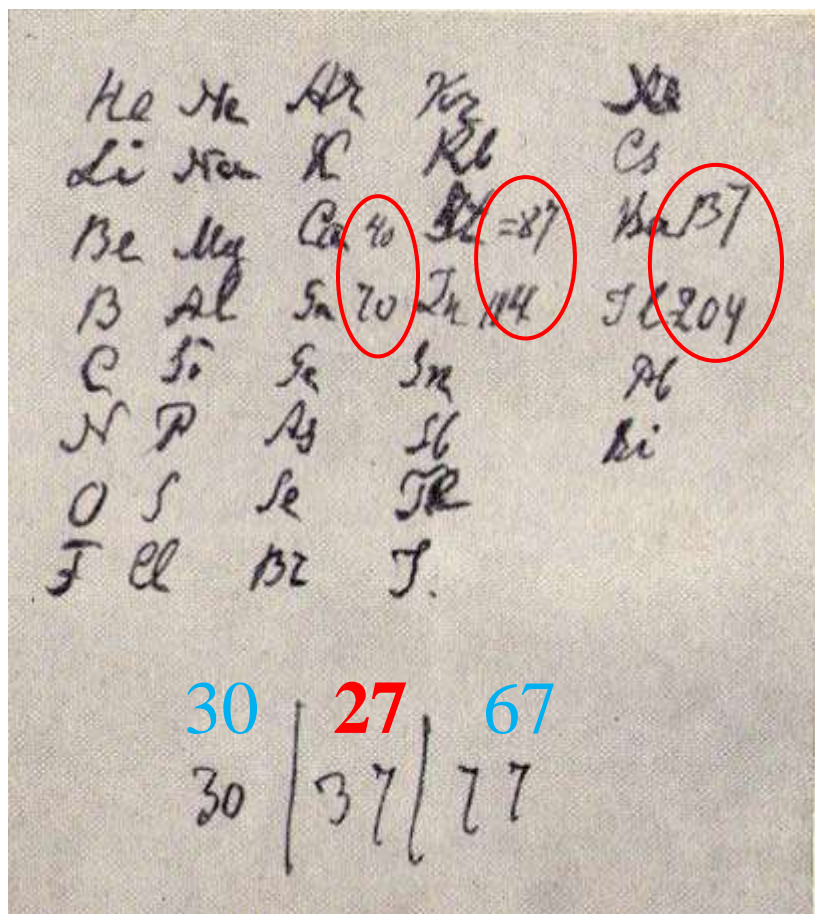 He Ne Ar Kr Xe
Li Na K Rb Cs
Be Mg Ca 40 =87 Ba 137
B Al Ga 70 In 114 Tl 204
C Si Ge Sn Pb
N P As Sb Bi
O S Se Te
F Cl Br J.
30 27 67
30 | 37 | 77